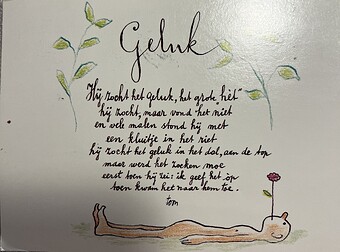 Geluk
Hij zocht het geluk, het grote "hèt"
hij zocht, maar vond "het" niet
en vele malen stond hij met
een kluitje in het riet
hij zocht het geluk in het dal, aan de top
maar werd het zoeken moe
eerst toen hij zei: ik geef het op
toen kwam het naar hem toe.
Tom